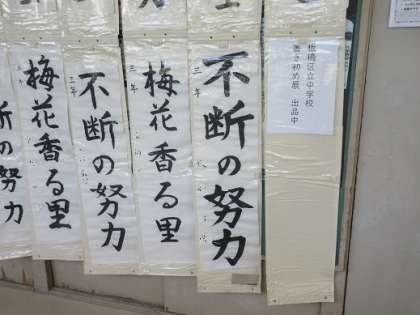 板橋区立中学校
書き初め展 出品中
不断の努力
三年
梅花香る里
三年
不断の努力
三年
梅花香る里
三年
の努力